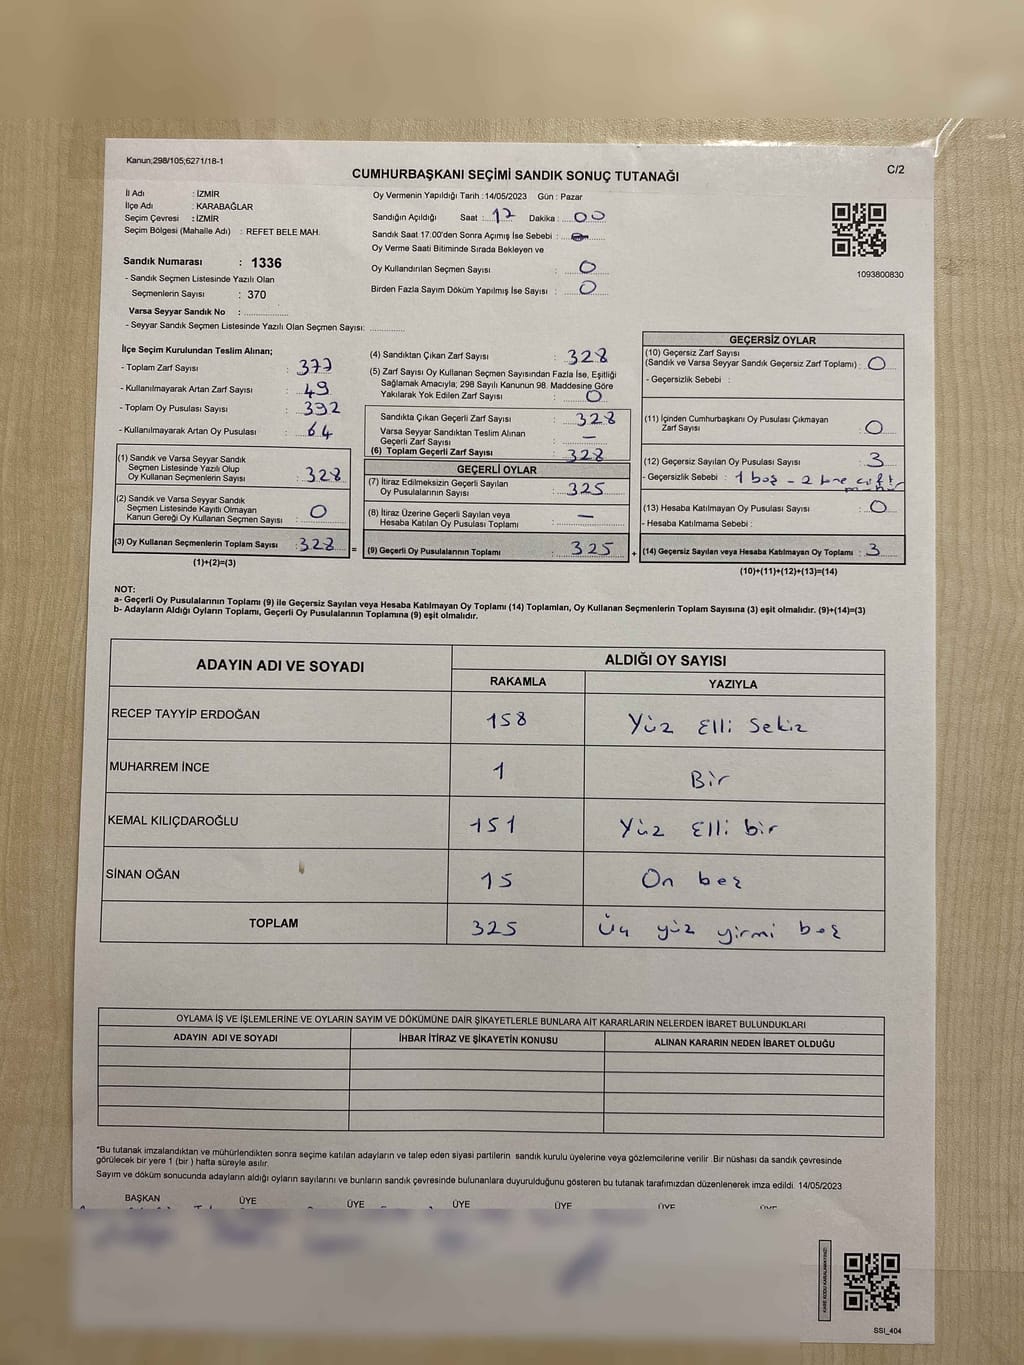 Kanun;298/105;6271/18-1
C/2
CUMHURBAŞKANI SEÇİMİ SANDIK SONUÇ TUTANAĞI
İl Adı : İZMİR
İlçe Adı : KARABAĞLAR
Seçim Çevresi : İZMİR
Seçim Bölgesi (Mahalle Adı) : REFET BELE MAH.
Sandık Numarası : 1336
- Sandık Seçmen Listesinde Yazılı Olan
Seçmenlerin Sayısı : 370
Varsa Seyyar Sandık No :
- Seyyar Sandık Seçmen Listesinde Yazılı Olan Seçmen Sayısı:
Oy Vermenin Yapıldığı Tarih : 14/05/2023 Gün : Pazar
Sandığın Açıldığı Saat : 17 Dakika : 00
Sandık Saat 17:00'den Sonra Açımış İse Sebebi :
Oy Verme Saati Bitiminde Sırada Bekleyen ve
Oy Kullandırılan Seçmen Sayısı : 0
Birden Fazla Sayım Döküm Yapılmış İse Sayısı : 0
1093800830
İlçe Seçim Kurulundan Teslim Alınan;
- Toplam Zarf Sayısı : 377
- Kullanılmayarak Artan Zarf Sayısı : 49
- Toplam Oy Pusulası Sayısı : 392
- Kullanılmayarak Artan Oy Pusulası : 64
(1) Sandık ve Varsa Seyyar Sandık
Seçmen Listesinde Yazılı Olup
Oy Kullanan Seçmenlerin Sayısı : 328
(2) Sandık ve Varsa Seyyar Sandık
Seçmen Listesinde Kayıtlı Olmayan
Kanun Gereği Oy Kullanan Seçmen Sayısı : 0
(3) Oy Kullanan Seçmenlerin Toplam Sayısı : 328
(1)+(2)=(3)
=
(4) Sandıktan Çıkan Zarf Sayısı : 328
(5) Zarf Sayısı Oy Kullanan Seçmen Sayısından Fazla İse, Eşitliği
Sağlamak Amacıyla; 298 Sayılı Kanunun 98. Maddesine Göre
Yakılarak Yok Edilen Zarf Sayısı : 0
Sandıkta Çıkan Geçerli Zarf Sayısı : 328
Varsa Seyyar Sandıktan Teslim Alınan
Geçerli Zarf Sayısı : —
(6) Toplam Geçerli Zarf Sayısı : 328
GEÇERLİ OYLAR
(7) İtiraz Edilmeksizin Geçerli Sayılan
Oy Pusulalarının Sayısı : 325
(8) İtiraz Üzerine Geçerli Sayılan veya
Hesaba Katılan Oy Pusulası Toplamı : —
(9) Geçerli Oy Pusulalarının Toplamı : 325
+
GEÇERSİZ OYLAR
(10) Geçersiz Zarf Sayısı
(Sandık ve Varsa Seyyar Sandık Geçersiz Zarf Toplamı) : 0
- Geçersizlik Sebebi :
(11) İçinden Cumhurbaşkanı Oy Pusulası Çıkmayan
Zarf Sayısı : 0
(12) Geçersiz Sayılan Oy Pusulası Sayısı : 3
- Geçersizlik Sebebi : 1 boş - 2
(13) Hesaba Katılmayan Oy Pusulası Sayısı : 0
- Hesaba Katılmama Sebebi :
(14) Geçersiz Sayılan veya Hesaba Katılmayan Oy Toplamı : 3
(10)+(11)+(12)+(13)=(14)
NOT:
a- Geçerli Oy Pusulalarının Toplamı (9) ile Geçersiz Sayılan veya Hesaba Katılmayan Oy Toplamı (14) Toplamları, Oy Kullanan Seçmenlerin Toplam Sayısına (3) eşit olmalıdır. (9)+(14)=(3)
b- Adayların Aldığı Oyların Toplamı, Geçerli Oy Pusulalarının Toplamına (9) eşit olmalıdır.
ADAYIN ADI VE SOYADI
ALDIĞI OY SAYISI
RAKAMLA YAZIYLA
RECEP TAYYİP ERDOĞAN 158 Yüz Elli Sekiz
MUHARREM İNCE 1 Bir
KEMAL KILIÇDAROĞLU 151 Yüz Elli bir
SİNAN OĞAN 15 On beş
TOPLAM 325 Üç yüz yirmi beş
OYLAMA İŞ VE İŞLEMLERİNE VE OYLARIN SAYIM VE DÖKÜMÜNE DAİR ŞİKAYETLERLE BUNLARA AİT KARARLARIN NELERDEN İBARET BULUNDUKLARI
ADAYIN ADI VE SOYADI İHBAR İTİRAZ VE ŞİKAYETİN KONUSU ALINAN KARARIN NEDEN İBARET OLDUĞU
*Bu tutanak imzalandıktan ve mühürlendikten sonra seçime katılan adayların ve talep eden siyasi partilerin sandık kurulu üyelerine veya gözlemcilerine verilir .Bir nüshası da sandık çevresinde
görülecek bir yere 1 (bir ) hafta süreyle asılır.
Sayım ve döküm sonucunda adayların aldığı oyların sayılarını ve bunların sandık çevresinde bulunanlara duyurulduğunu gösteren bu tutanak tarafımızdan düzenlenerek imza edildi. 14/05/2023
BAŞKAN ÜYE ÜYE ÜYE ÜYE ÜYE ÜYE
SSI_404